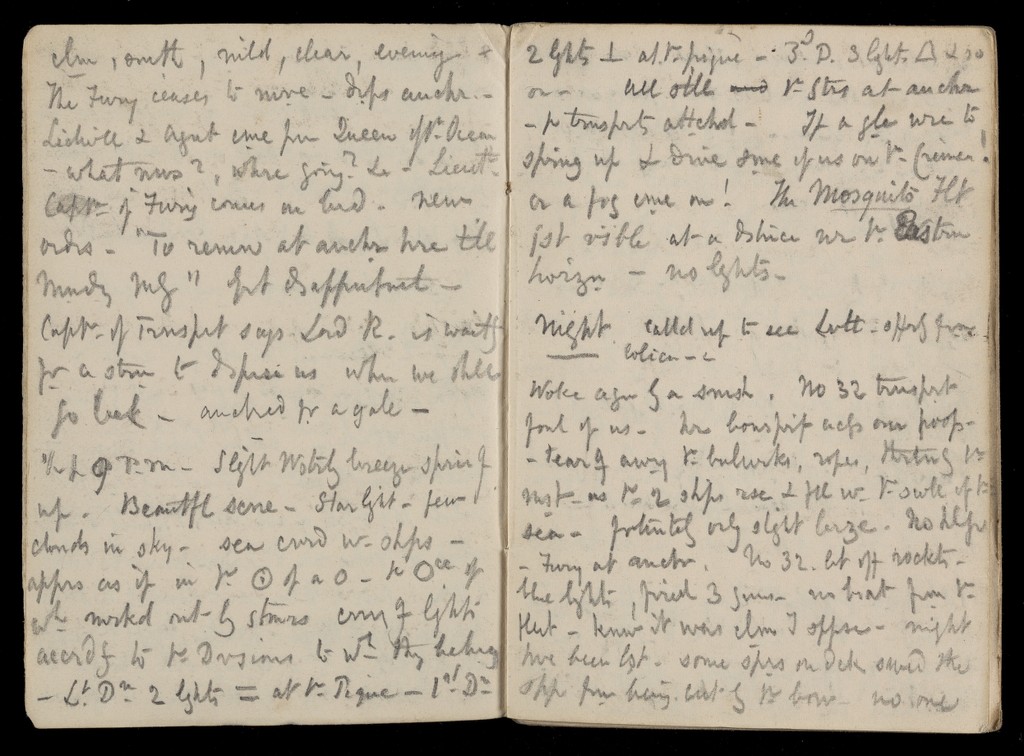 clm, smth, mild, clear, evening &
The Fury ceases to move - drps anchr. -
& Agent cme frm Queen of th Ocean
- what news?, where going? &c - Lieut.
Captn of Fury comes on brd. New
ordrs - "To remn at anchr here till
Mndy Mg" Grt disappintmnt -
Captn of Trnsprt says Lord R. is waitg
for a strm to disperse us when we shll
go back - anchred for a gale -
½ p 9 P.m - Slght Wstrly breeze spring
up. Beautfl scene - Starlight - few
clouds in sky - sea covrd w. shps -
apprs as if in th ⊙ of a O - th Oce of
wh markd out by stmrs carryg lghts
accrdg to th Divisions to wh they belong
- Lt Dn 2 lghts = at th Pique - 1st Dn
2 lghts ⊥ at th pique - 3d D. 3 lghts △ & so
on - All still th Strs at anchr
- th trnsprts attchd - If a gle wre to
spring up & drive some of us on th Crimea!
or a fog cme on! The Mosquito Flt
jst visble at a distnce nr th Eastrn
horizn - no lghts -
Night called up to see Lutt - sffrg from
colica -
Woke agn by a smsh. No 32 trnsprt
foul of us - her bowsprit acrss our poop -
- tearg away th bulwrks, ropes, th
mst - as th 2 shps rse & fll w. th swll of th
sea - fortntely only slght breeze - No hlp
- Fury at anchr. No 32 let off rockets -
blue lights, fired 3 guns - no boat from th
fleet - knew it was clm I sppse - might
hve been lst - some sprs on deck saved the
shp frm being cut by th bow - no one